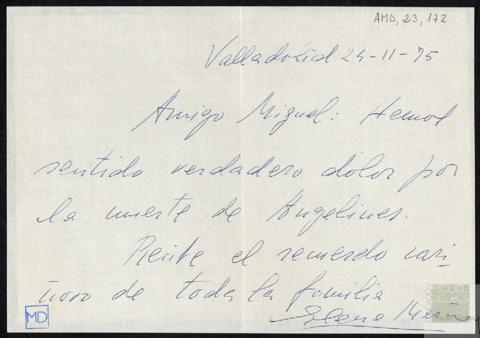 AMD, 23, 172
Valladolid 24-11-75
Amigo Miguel: Hemos
sentido verdadero dolor por
la muerte de Angelines.
Recibe el recuerdo cari-
ñoso de toda la familia
Elena
MD